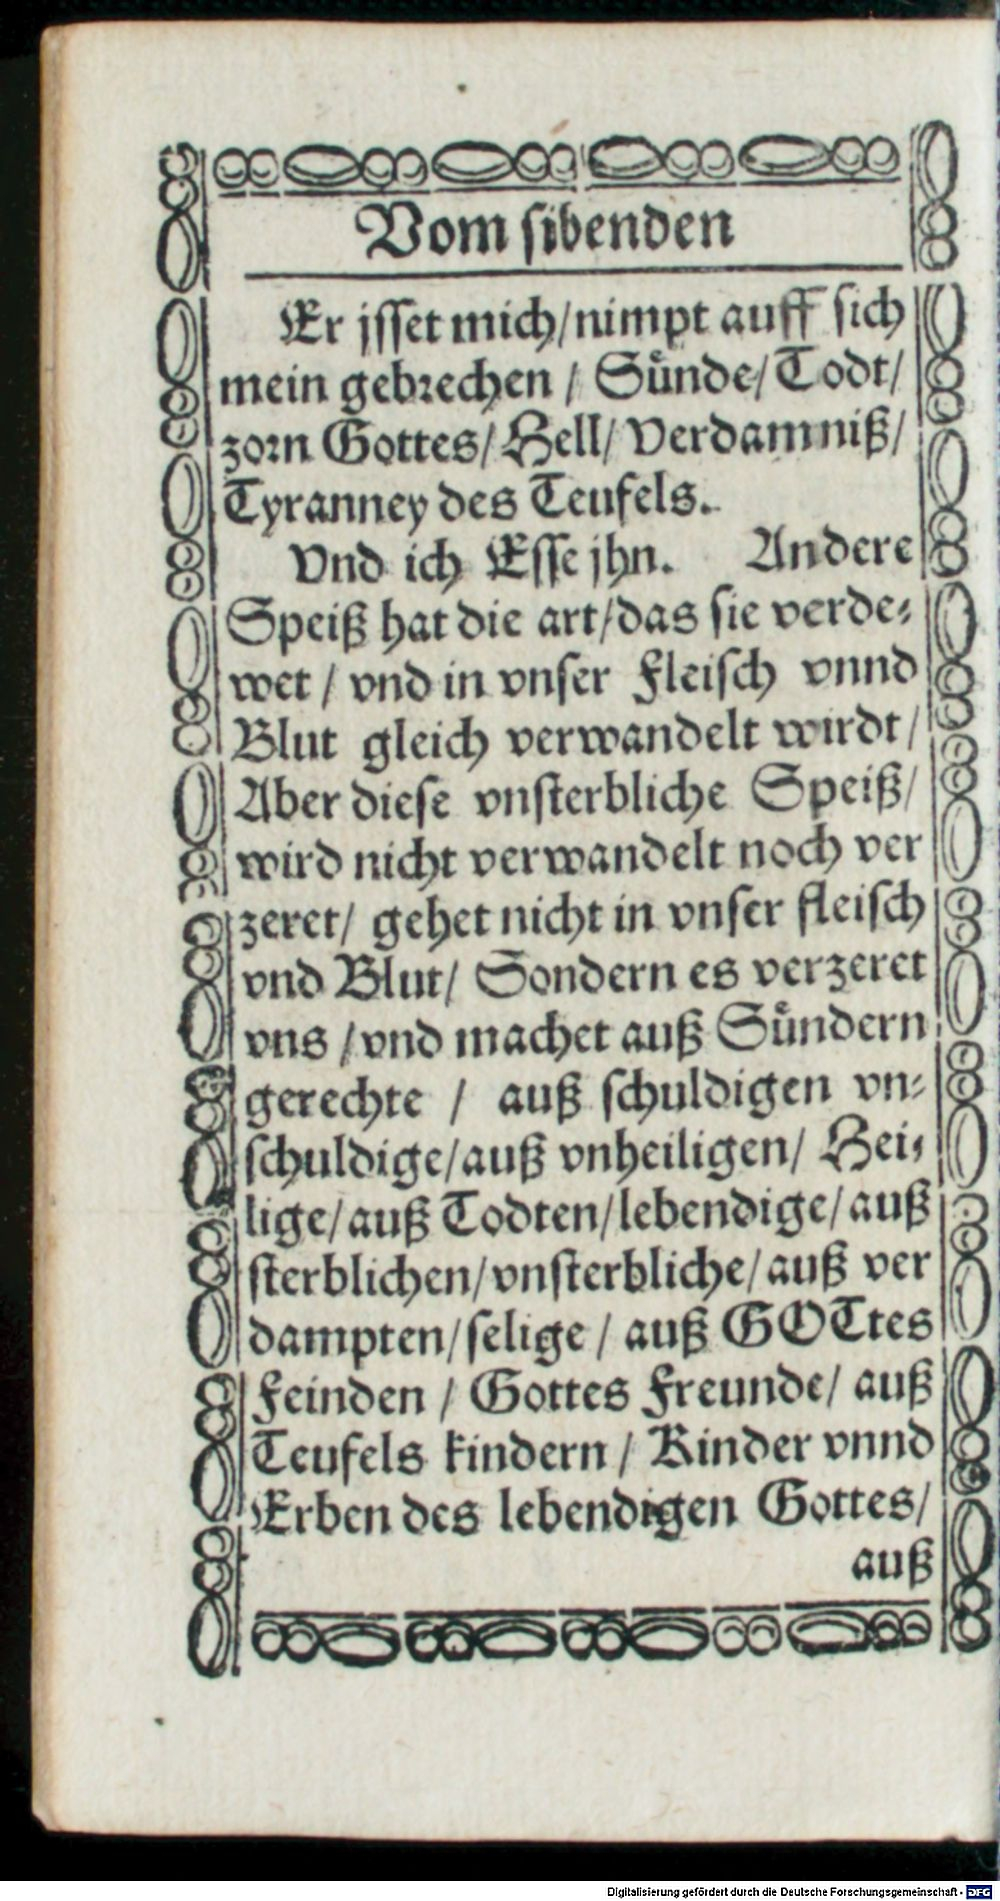 Vom sibenden
Er jsset mich/nimpt auff sich
mein gebrechen / Sünde/ Todt/
zorn Gottes/ Hell/ Verdamniß/
Tyranney des Teufels.
Vnd ich Esse jhn. Andere
Speiß hat die art/das sie verde-
wet / vnd in vnser Fleisch vnnd
Blut gleich verwandelt wirdt/
Aber diese vnsterbliche Speiß/
wird nicht verwandelt noch ver
zeret/ gehet nicht in vnser fleisch
vnd Blut/ Sondern es verzeret
vns / vnd machet auß Sündern
gerechte / auß schuldigen vn-
schuldige/auß vnheiligen/ Hei-
lige/auß Todten/lebendige/auß
sterblichen/vnsterbliche/auß ver
dampten/selige / auß GOTtes
Feinden / Gottes Freunde/ auß
Teufels kindern / Kinder vnnd
Erben des lebendigen Gottes/
auß
Digitalisierung gefördert durch die Deutsche Forschungsgemeinschaft - DFG